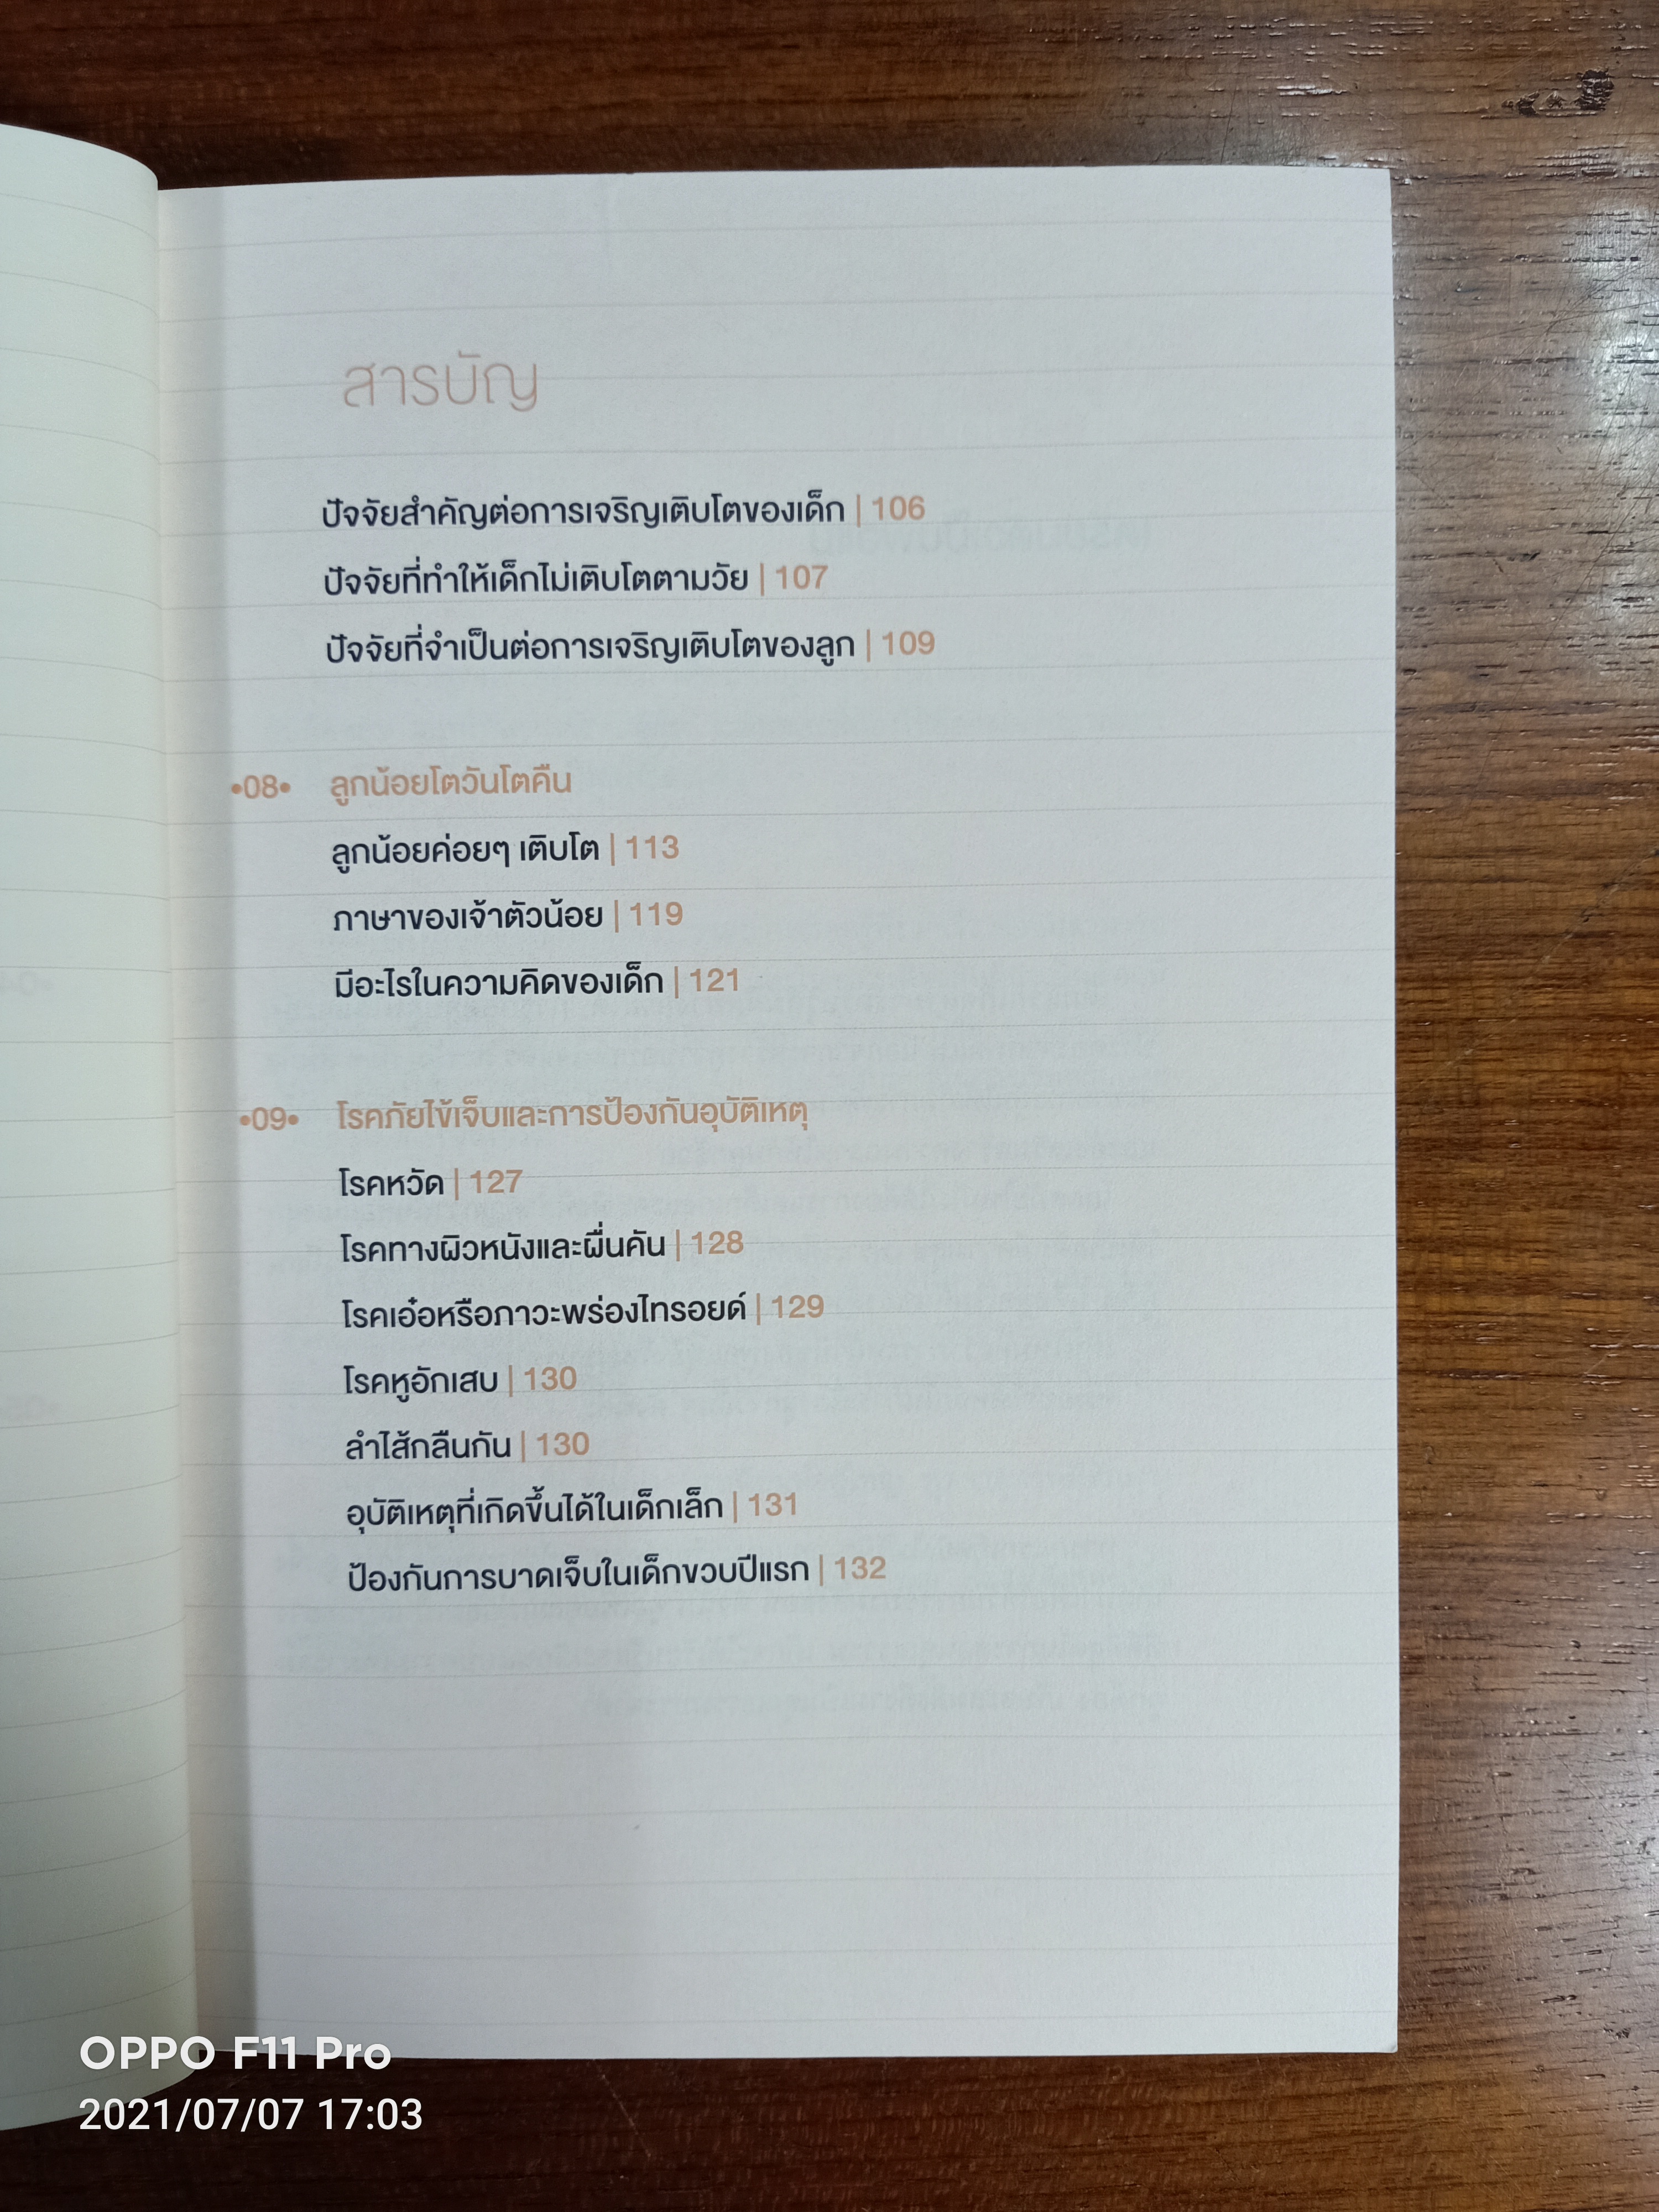 สารบัญ
ปัจจัยสำคัญต่อการเจริญเติบโตของเด็ก | 106
ปัจจัยที่ทำให้เด็กไม่เติบโตตามวัย | 107
ปัจจัยที่จำเป็นต่อการเจริญเติบโตของลูก | 109
•08• ลูกน้อยโตวันโตคืน
ลูกน้อยค่อยๆ เติบโต | 113
ภาษาของเจ้าตัวน้อย | 119
มีอะไรในความคิดของเด็ก | 121
•09• โรคภัยไข้เจ็บและการป้องกันอุบัติเหตุ
โรคหวัด | 127
โรคทางผิวหนังและผื่นคัน | 128
โรคเอ๋อหรือภาวะพร่องไทรอยด์ | 129
โรคหูอักเสบ | 130
ลำไส้กลืนกัน | 130
อุบัติเหตุที่เกิดขึ้นได้ในเด็กเล็ก | 131
ป้องกันการบาดเจ็บในเด็กขวบปีแรก | 132
OPPO F11 Pro
2021/07/07 17:03